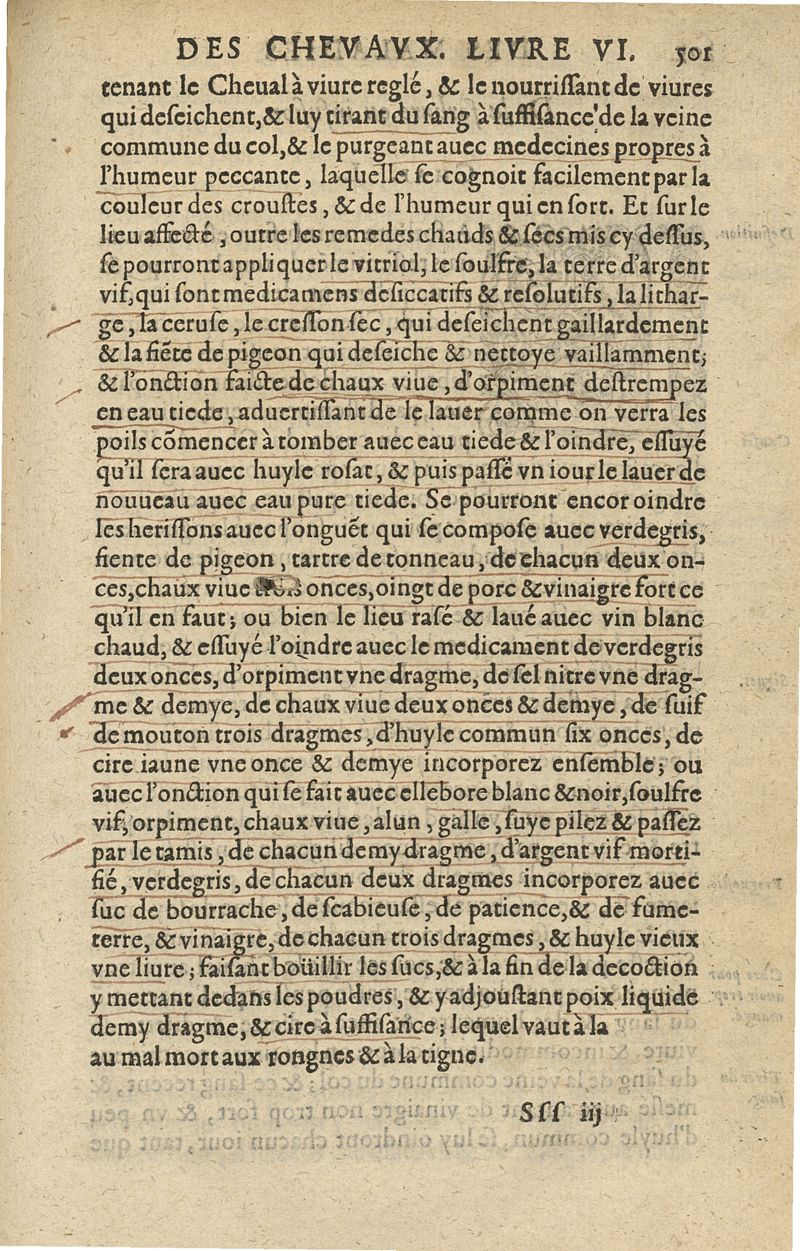 DES CHEVAVX. LIVRE VI. 501
tenant le Cheual à viure reglé, & le nourriſſant de viures
qui deſeichent, & luy tirant du ſang à ſuffiſance de la veine
commune du col, & le purgeant auec medecines propres à
l'humeur peccante, laquelle ſe cognoit facilement par la
couleur des crouſtes, & de l'humeur qui en ſort. Et ſur le
lieu affecté, outre les remedes chauds & ſecs mis cy deſſus,
ſe pourront appliquer le vitriol, le ſoulfre, la terre d'argent
vif, qui ſont medicamens deſiccatifs & reſolutifs, la lithar-
ge, la ceruſe, le creſſon ſec, qui deſeichent gaillardement
& la fiẽte de pigeon qui deſeiche & nettoye vaillamment;
& l'onction faicte de chaux viue, d'orpiment deſtrempez
en eau tiede, aduertiſſant de le lauer comme on verra les
poils cõmencer à tomber auec eau tiede & l'oindre, eſſuyé
qu'il ſera auec huyle roſat, & puis paſſé vn iour le lauer de
nouueau auec eau pure tiede. Se pourront encor oindre
les heriſſons auec l'onguẽt qui ſe compoſe auec verdegris,
fiente de pigeon, tartre de tonneau, de chacun deux on-
ces, chaux viue onces, oingt de porc & vinaigre fort ce
qu'il en faut; ou bien le lieu raſé & laué auec vin blanc
chaud, & eſſuyé l'oindre auec le medicament de verdegris
deux onces, d'orpiment vne dragme, de ſel nitre vne drag-
me & demye, de chaux viue deux onces & demye, de ſuif
de mouton trois dragmes, d'huyle commun ſix onces, de
cire iaune vne once & demye incorporez enſemble; ou
auec l'onction qui ſe fait auec ellebore blanc & noir, ſoulfre
vif, orpiment, chaux viue, alun, galle, ſuye pilez & paſſez
par le tamis, de chacun demy dragme, d'argent vif morti-
fié, verdegris, de chacun deux dragmes incorporez auec
ſuc de bourrache, de ſcabieuſe, de patience, & de fume-
terre, & vinaigre, de chacun trois dragmes, & huyle vieux
vne liure; faiſant boüillir les ſucs, & à la fin de la decoction
y mettant dedans les poudres, & y adjouſtant poix liquide
demy dragme, & cire à ſuffiſance; lequel vaut à la
au mal mort aux rongnes & à la tigne.
Sſſ iij